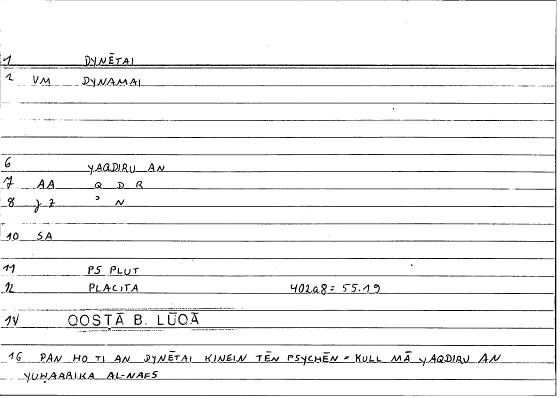 1 DYNĒTAI
2 VM DYNAMAI
6 YAQDIRU AN
7 AA Q D R
8 J 7 ʾ N
10 SA
11 PS PLUT
12 PLACITA 402a8 = 55.19
14 QOSṬĀ B. LŪQĀ
16 PAN HO TI AN DYNĒTAI KINEIN TĒN PSYCHĒN = KULL MĀ YAQDIRU AN
YUḤARRIKA AL-NAFS